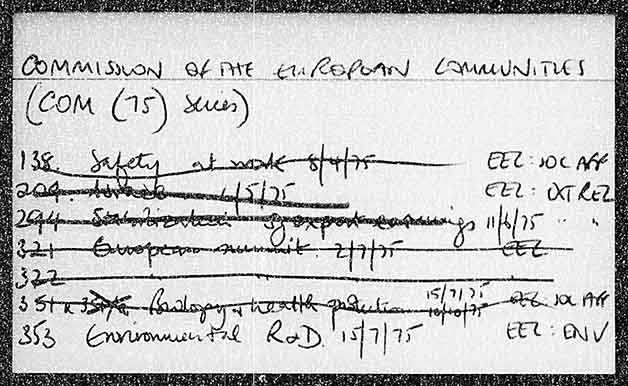 COMMISSION OF THE EUROPEAN COMMUNITIES
(COM (75) series)
138. Safety at work 8/4/75 EEC: SOC AFF
209. 6/5/75 EEC: EXT REL
294 Stabilization of export earnings 11/6/75 " "
321 European summit. 2/7/75 EEC
322
351 & Biology & health protection 15/7/75 16/10/75 EEC SOC AFF
353 Environmental R&D. 15/7/75 EEC: ENV